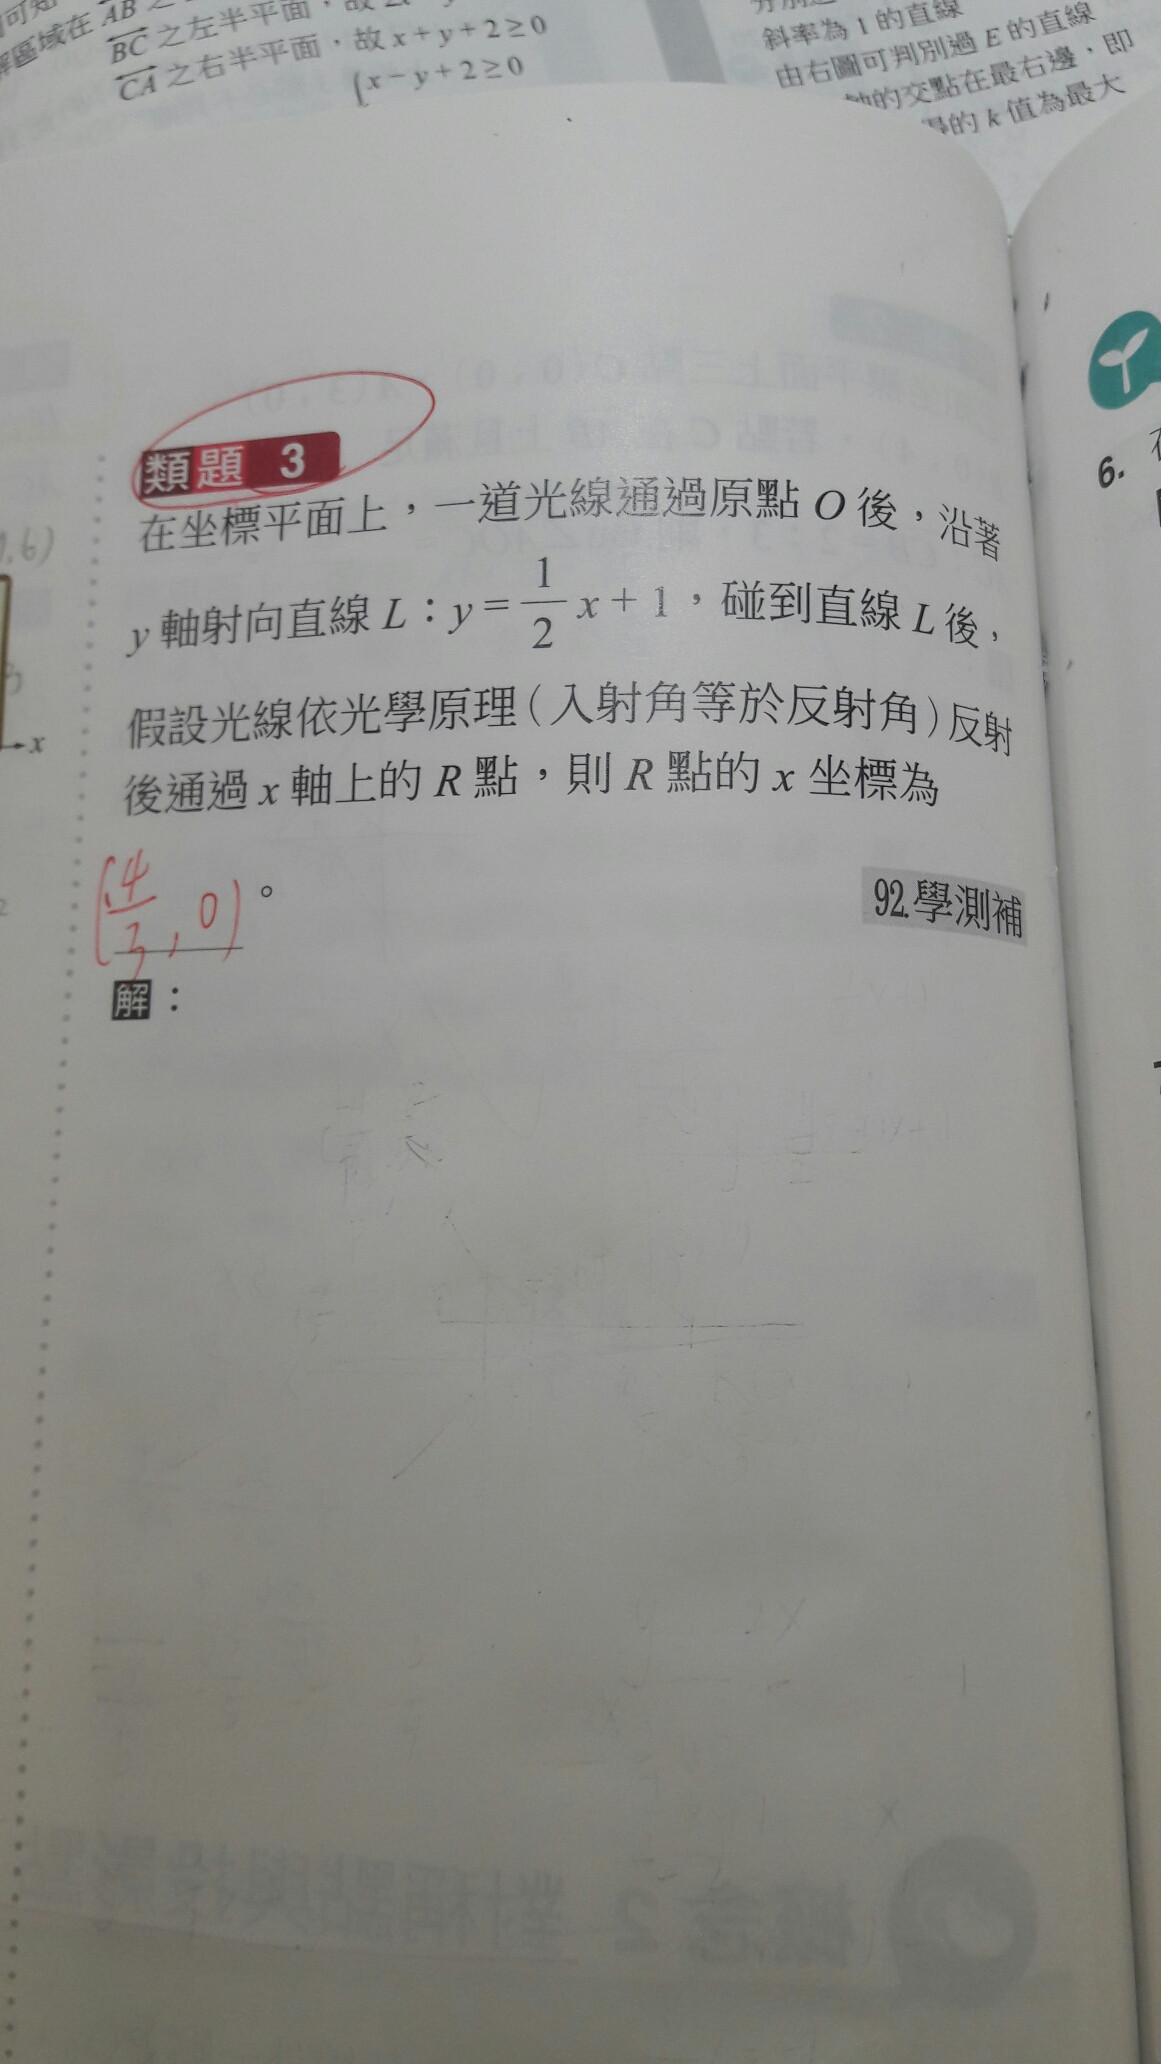 AB
BC 之左半平面，故 x+y+2≥0
CA 之右半平面，故
x−y+2≥0
斜率為 1 的直線
由右圖可判別過 E 的直線
的交點在最右邊，即
的 k 值為最大
類題 3
在坐標平面上，一道光線通過原點 O 後，沿著
y 軸射向直線 L：y=1/2 x+1，碰到直線 L 後，
假設光線依光學原理(入射角等於反射角)反射
後通過 x 軸上的 R 點，則 R 點的 x 坐標為
(4/3, 0)。
92.學測補
解：
6.
x